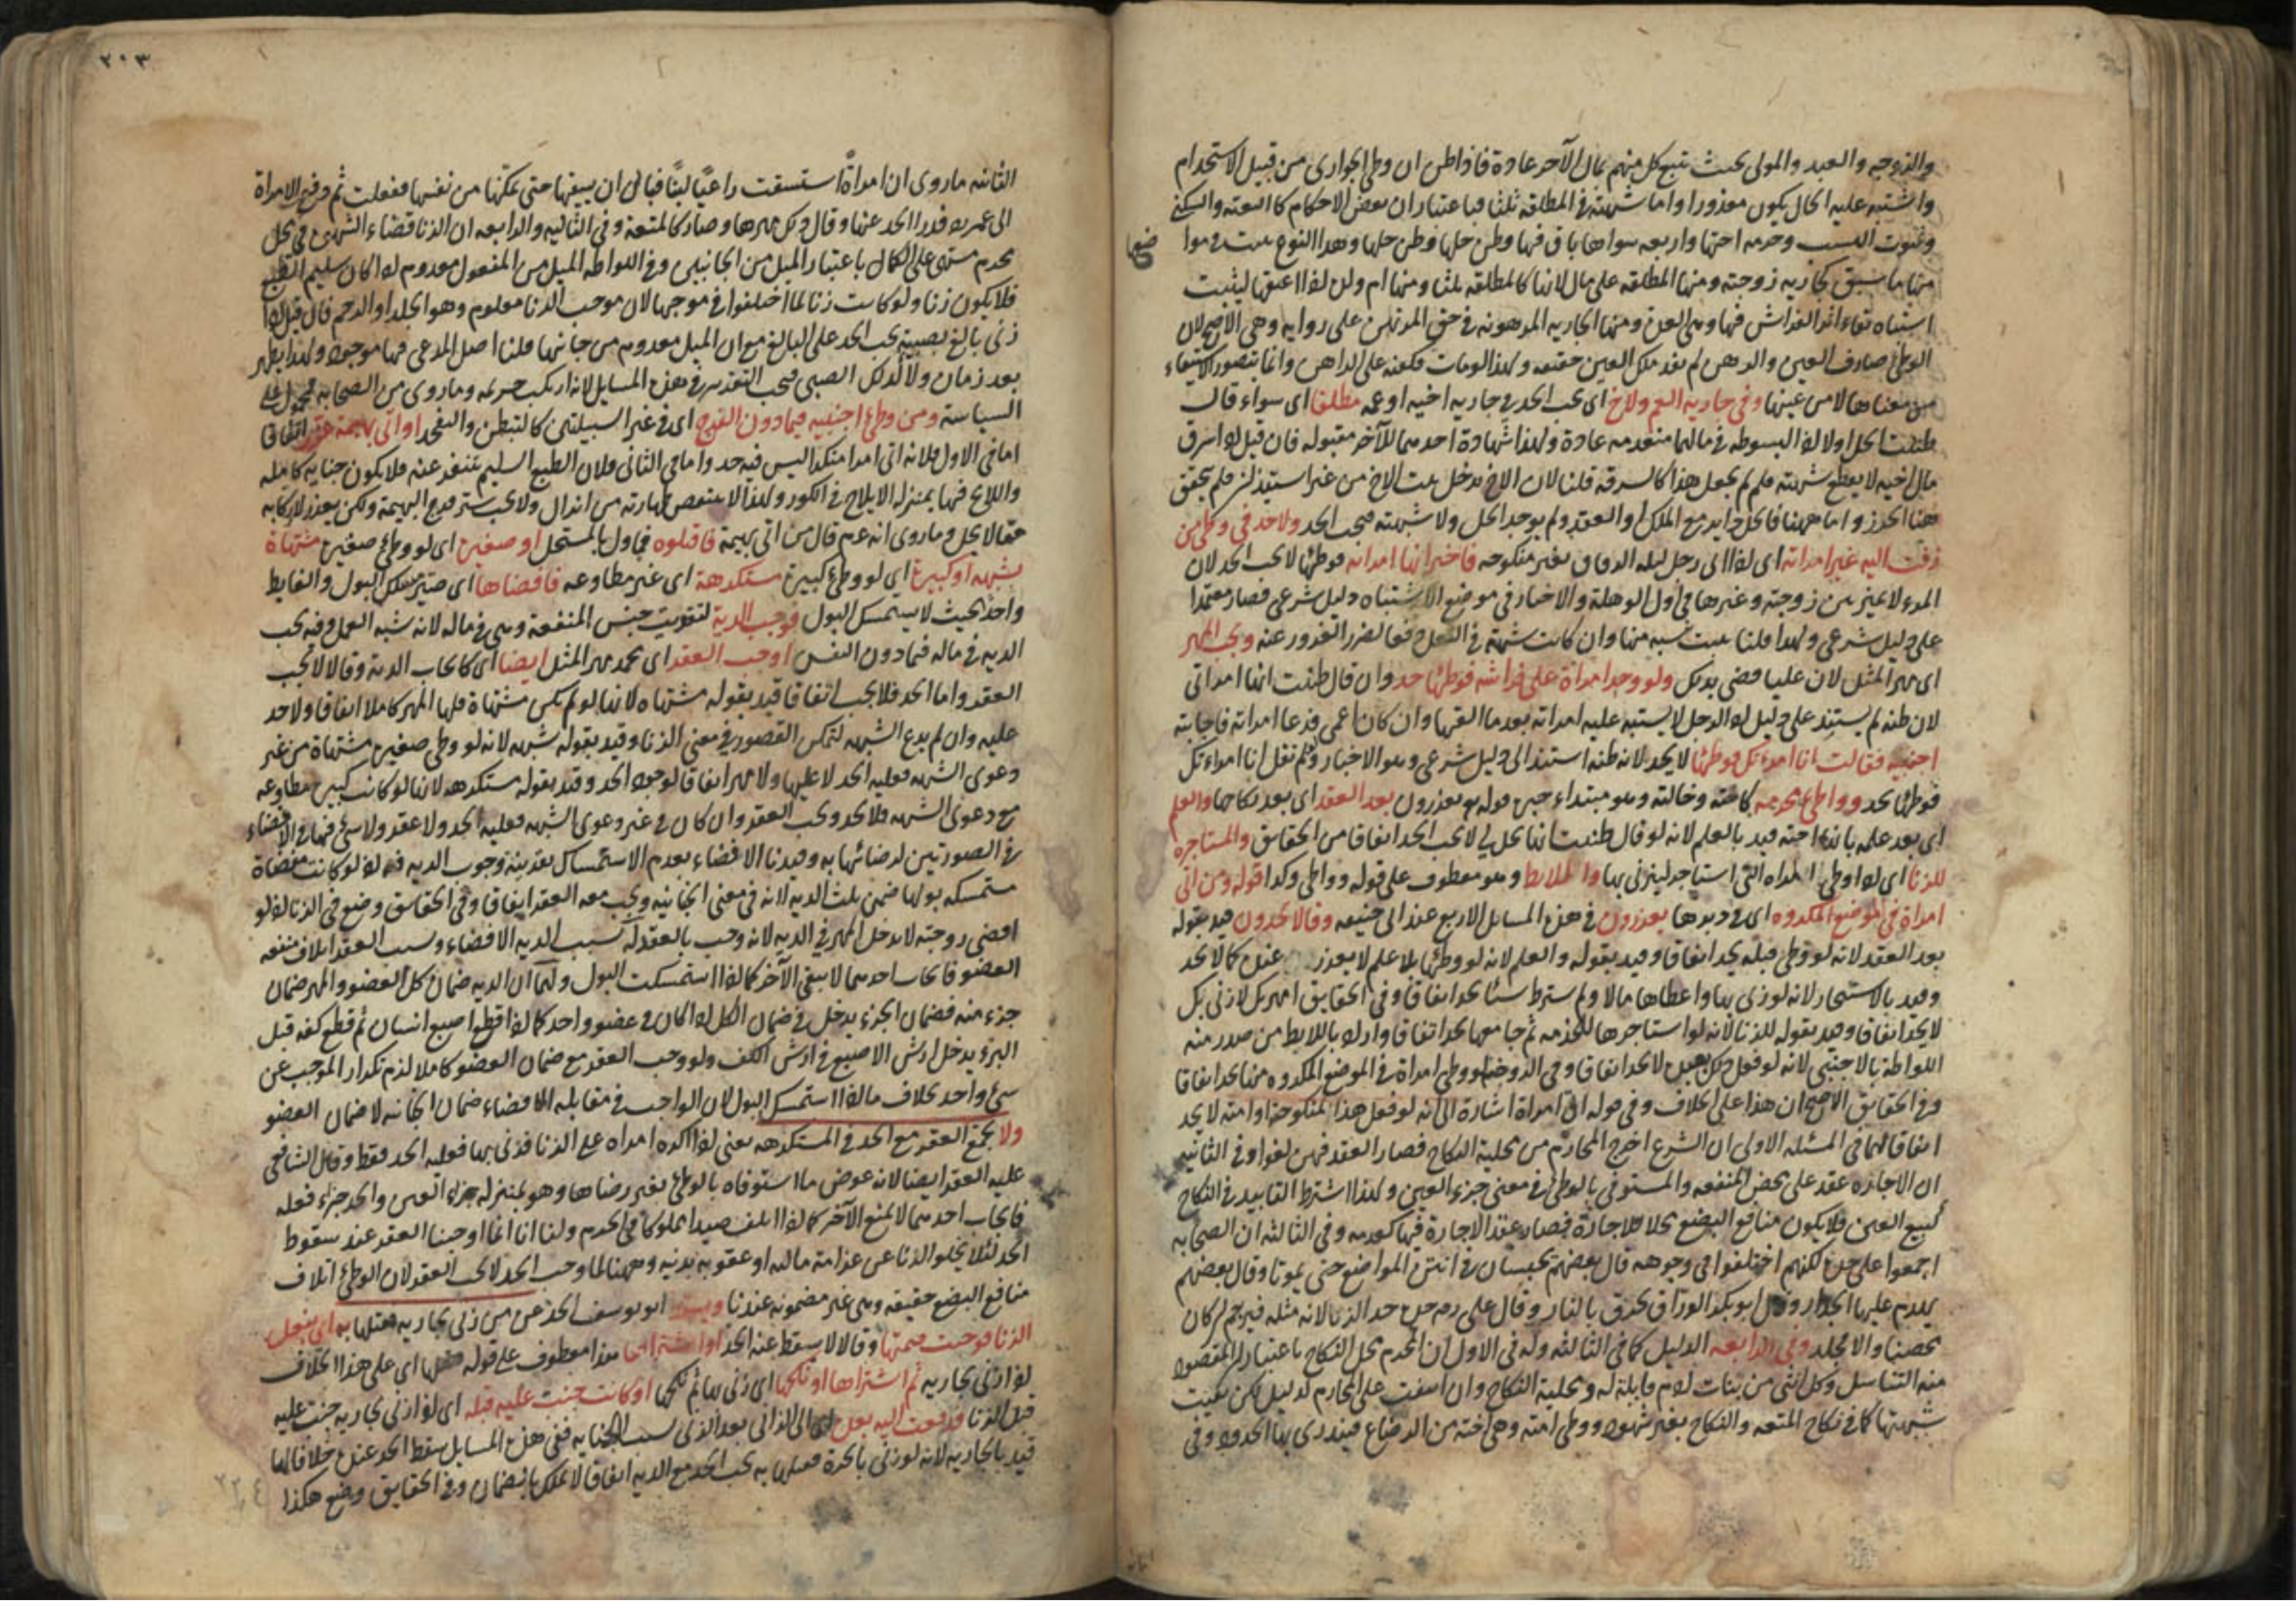 والزوجه والعبد والمولى بحيث ينتفع كل منهم بمال الآخر عادة فاذا ظن ان وطئ الجوارى من قبيل الاستخدام
واشتبه عليه الحال يكون معذورا واما شبهته فى المطلقه ثلثا فباعتبار ان بعض الاحكام كالعدة والسكنى
وثبوت النسب وحرمه اختها واربعه سواها باق فيها وظن حلها وظن حلها وهذا النوع يثبت فى موا
ضع
منها ما سبق كجاريه زوجته ومنها المطلقه على مال لانها كالمطلقه ثلثا ومنها ام ولد اذا اعتقها ليثبت
اشتباه بقاء اثر الفراش فيها وهى العدة ومنها الجاريه المرهونه فى حق المرتهن على روايه وهى الاصح لان
الوطئ صادف العين والرهن لم يفد ملك العين حقيقه ولهذا لو مات فكفنه على الراهن وانما يتصور الاستيفاء
من معناها لا من عينها وفى جاريه العم والاخ اى يجب الحد فى جاريه اخيه او عمه مطلقا اى سواء قال
ظننت الحل اولا اذ لا بسوطه فى مالهما منعدمه عادة ولهذا شهادة احدهما للآخر مقبوله فان قيل لو سرق
مال اخيه لا يقطع شبهته فلم لم يجعل هذا كالسرقة قلنا لان الاخ يدخل بيت الاخ من غير استيذان فلم يتحقق
هنا الحرز واما ههنا فالحل دايرمع الملك او العقد ولم يوجد الحل ولا شبهته فيجب الحد ولا حد فى وطئ من
زفت اليه غير امراته اى اذا الى رجل ليله الزفاف بغير منكوحه فاخبر انها امراته فوطئها لا يجب الحد لان
المرء لا يميز بين زوجته وغيرها فى اول الوهلة والاخبار فى موضع الاشتباه دليل شرعى فصار معتمدا
على دليل شرعى ولهذا قلنا يثبت نسبه منها وان كانت شبهة فى الفعل دفعا لضرر الغرور عنه ويجب المهر
اى مهر المثل لان عليا قضى بذلك ولو وجد امراة على فراشه فوطئها حد وان قال ظننت انها امراتى
لان ظنه لم يستند على دليل اذ الرجل لا يشتبه عليه امراته بعد ما القربها وان كان اعمى فدعا امراته فاجابته
اجنبيه فقالت انا امراتك فوطئها لا يحد لانه ظنه استند الى دليل شرعى وهو الاخبار ولم تقل انا امراتك
فوطئها يحد وواطئ محرمه كاخته وخالته وهو مبتداء خبره قوله يعزرون بعد العقد اى بعد نكاحها والعلم
اى بعد علمه بانها اخته قيد بالعلم لانه لو قال ظننت انها تحل لى لا يجب الحد اتفاقا من الحقايق والمستاجره
للزنا اى اذا وطئ المراه التى استاجر ليزنى بها واللايط وهو معطوف على قوله وواطئ وكذا قوله ومن اتى
امراة فى الموضع المكروه اى فى دبرها يعزرون فى هذه المسايل الاربع عند ابى حنيفه وقالا يحدون قيد بقوله
بعد العقد لانه لو وطئ قبله يحد اتفاقا وقيد بقوله والعلم لانه لو وطئها بلا علم لا يعزر عنده كما لا يحد
وقيد بالاستيجار لانه لو زنى بها واعطاها مالا ولم يشترط شيئا يحد اتفاقا وفى الحقايق امهرتك لازنى بك
لا يحد اتفاقا وقيد بقوله للزنا لانه لو استاجرها للخدمه ثم جامعها يحد اتفاقا وارادو باللايط من صدر منه
اللواطة بالاجنبى لانه لو فعل ذلك بعبده لا يحد اتفاقا وفى الزوجة لو وطئ امراة فى الموضع المكروه منها يحد اتفاقا
وفى الحقايق الاصح ان هذا على الخلاف وفى قوله اتى امراة اشارة الى انه لو فعل هذا بمنكوحته او امته لا يحد
اتفاقا لهما فى المسئله الاولى ان الشرع اخرج المحارم من محلية النكاح فصار العقد فيهن لغوا وفى الثانيه
ان الاجاره عقد على محض المنفعه والمستوفى بالوطئ فى معنى جزء العين ولهذا اشترط التابيد فى النكاح
كبيع العين فلا يكون منافع البضع محلا للاجارة فصار عقد الاجارة فيها كعدمه وفى الثالثه ان الصحابه
اجمعوا على حده لكنهم اختلفوا فى وجوهه قال بعضهم يحبسان فى انتن المواضع حتى يموتا وقال بعضهم
يهدم عليهما الجدار وقال ابو بكر الوراق يحرق بالنار وقال على رضه حده حد الزنا لانه مثله فيرجم ان كان
محصنا والا يجلد وفى الرابعه الدليل كما فى الثالثه وله فى الاول ان المحرم محل النكاح باعتبار ان المقصود
منه التناسل وكل انثى من بنات ادم قابلة له ومحلية النكاح وان انتفت على المحارم لدليل لكن بقيت
شبهتها كما فى نكاح المتعه والنكاح بغير شهود ووطئ امته وهى اخته من الرضاع فيندرئ بها الحدود وفى
الثانيه
٢٠٣
الثانيه ما روى ان امراةً استسقت راعيًا لبنًا فبا لى ان يسقيها حتى تمكنها من نفسها ففعلت ثم رفع الامراة
الى عمر رضه فدرا الحد عنها وقال ذلك مهرها وصار كالمتعة وفى الثالثه والرابعه ان الزنا قضاء الشهوة فى محل
محرم مشتهى على الكمال باعتبار الميل من الجانبين وفى اللواطه الميل من المفعول معدوم اذا كان سليم الطبع
فلا يكون زنا ولو كانت زنا لما اختلفوا فى موجبها لان موجب الزنا معلوم وهو الجلد او الرجم فان قيل اذا
زنى بالغ بصبية يجب الحد على البالغ مع ان الميل معدوم من جانبها قلنا اصل المدعى فيها موجود ولهذا يظهر
بعد زمان ولا كذلك الصبى فيجب التعزير فى هذه المسايل لانه ارتكب جريمه وما روى من الصحابه محمول على
السياسة ومن وطئ اجنبيه فيما دون الفرج اى فى غير السبيلين كالتبطين والتفخيذ او اتى بهيمة عزر اتفاقا
اما فى الاول فلانه اتى امرا منكرا ليس فيه حد واما فى الثانى فلان الطبع السليم يتنفر عنه فلا يكون جنايه كامله
والايلاج فيها بمنزله الايلاج فى الكوز ولهذا لا ينتقض طهارته من انزال ولا يجب ستر فرج البهيمة ولكن يعزر لارتكابه
فعلا لا يحل وما روى انه عم قال من اتى بهيمة فاقتلوه فماول بالمستحل او صغيرة اى لو وطئ صغيرة مشتهاة
بشبهه او كبيرة اى لو وطئ كبيرة مستكرهة اى غير مطاوعه فافضاها اى صير مسلك البول والغايط
واحدا بحيث لا يستمسك البول فوجب الدية لتفويت جنس المنفعة وهى فى ماله لانه شبه العمد وفيه يجب
الديه فى ماله فيما دون النفس اوجب العقد اى محمد مهر المثل ايضا اى كايجاب الدية وقالا لا يجب
العقر واما الحد فلا يجب اتفاقا قيد بقوله مشتهاه لانها لو لم تكن مشتهاة فلها المهر كاملا اتفاقا ولا حد
عليه وان لم يدع الشبهه لتمكن القصور فى معنى الزنا وقيد بقوله شبهه لانه لو وطئ صغيرة مشتهاة من غير
دعوى الشبهه فعليه الحد لا عليها ولا مهر اتفاقا لوجود الحد وقيد بقوله مستكرهه لانها لو كانت كبيره مطاوعه
مع دعوى الشبهه فلا يحد ويجب العقر وان كان فى غير دعوى الشبهه فعليه الحد ولا عقد ولا شئ فيها فى الافضاء
فى الصورتين لرضائها به وقيدنا الافضاء بعدم الاستمساك بقرينة وجوب الديه فيه اذ لو كانت مفضاة
مستمسكه بولها ضمن ثلث الديه لانه فى معنى الجائفه ويجب معه العقر اتفاقا وفى الحقايق وضع فى الزنا اذ لو
افضى زوجته لا يدخل المهر فى الديه لانه وجب بالعقد له سبب الديه الافضاء وسبب العقر اتلاف منفعه
العضو فايجاب احدهما لا ينفى الآخر كما اذا استمسكت البول ولهما ان الديه ضمان كل العضو والمهر ضمان
جزء منه فضمان الجزء يدخل فى ضمان الكل اذا كان فى عضو واحد كما اذا قطع اصبع انسان ثم قطع كفه قبل
البرء يدخل ارش الاصبع فى ارش الكف ولو وجب العقر مع ضمان العضو كاملا لزم تكرار الموجب عن
شئ واحد بخلاف ما اذا استمسك البول لان الواجب فى مقابله الافضاء ضمان الجائفه لا ضمان العضو
ولا يجتمع العقر مع الحد فى المستكرهه يعنى اذا اكره امراه على الزنا فزنى بها فعليه الحد فقط وقال الشافعى
عليه العقر ايضا لانه عوض ما استوفاه بالوطئ بغير رضاها وهو بمنزله جزاء العين والحد جزاء فعله
فايجاب احدهما لا يمنع الآخر كما اذا اتلف صيدا مملوكا فى الحرم ولنا انا انما اوجبنا العقر عند سقوط
الحد لئلا يخلو الزنا عن غرامة ماليه او عقوبه بدنيه وههنا لما وجب الحد لا يجب العقر لان الوطئ اتلاف
منافع البضع حقيقه وهى غير مضمونه عندنا ويسقط ابو يوسف الحد عن من زنى بجاريه فقتلها به اى بفعل
الزنا فوجبت قيمتها وقالا لا يسقط عنه الحد او اشتراها هذا معطوف على قوله فقتلها اى على هذا الخلاف
لو زنى بجاريه ثم اشتراها او نكحها اى زنى بها ثم نكحها او كانت جنت عليه قبله اى لو زنى بجاريه جنت عليه
قبل الزنا فدفعت اليه بعده اى الى الزانى بعد الزنى بسبب الجنايه ففى هذه المسايل سقط الحد عنده خلافا لهما
قيد بالجاريه لانه لو زنى بالحرة فقتلها به يجب الحد مع الديه اتفاقا لا تملك بالضمان وفى الحقايق وضع هكذا
٢٢٤